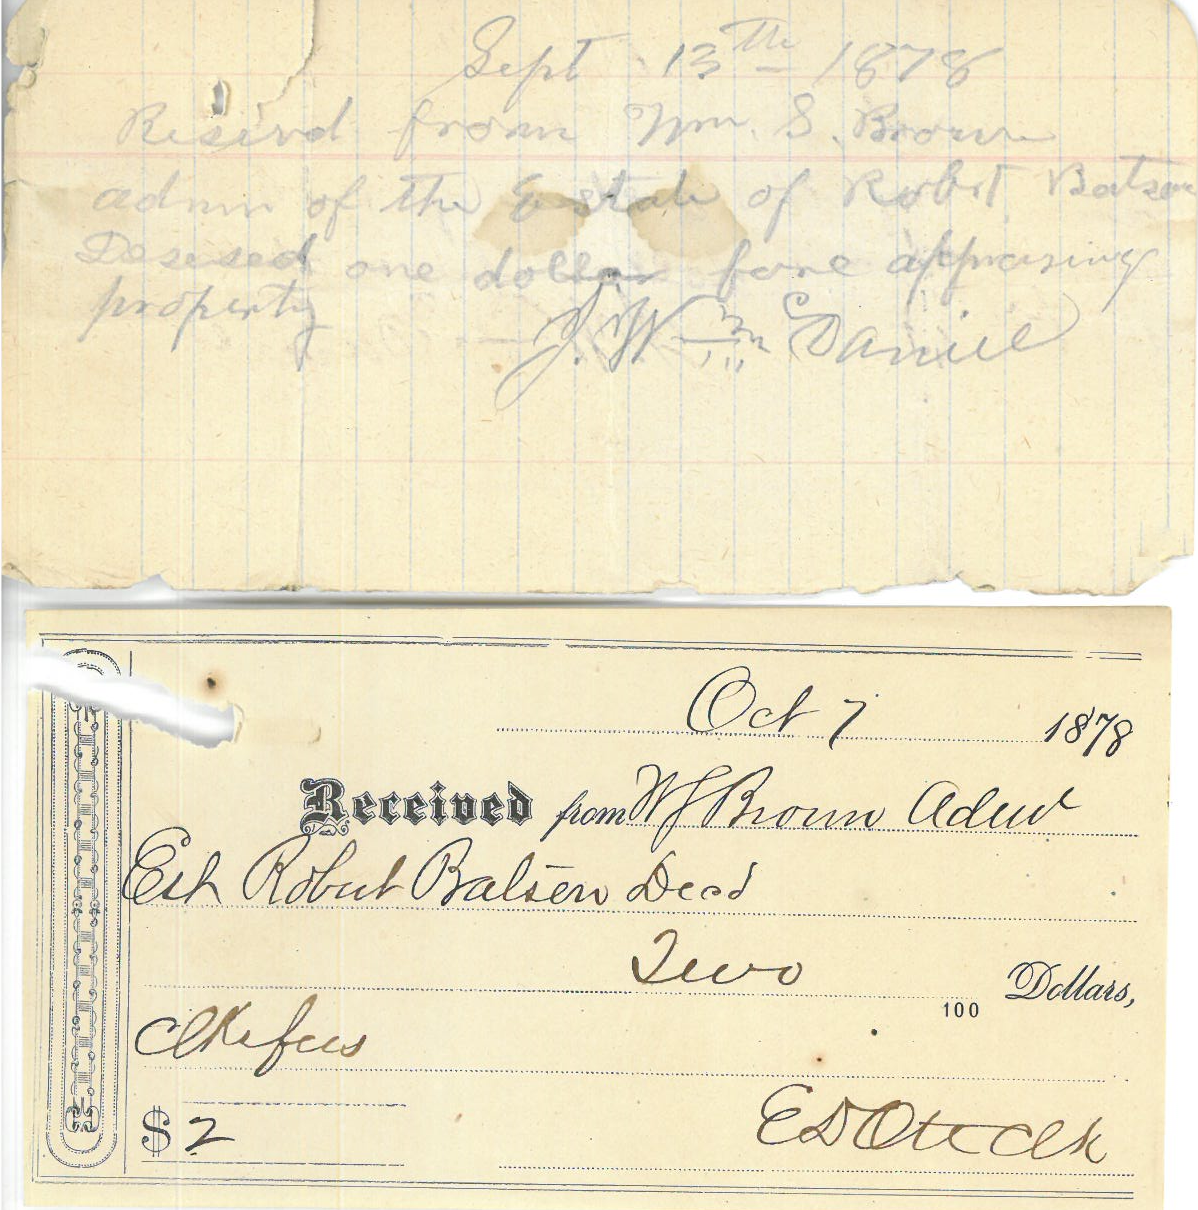 Sept 13th 1878
Resievd from Wm. S. Brown
admn of the Estate of Robert Batson
Desesed one dollar fore appraising
property
J. W. McDaniel
Oct 7 1878
Received from W S Brown Admr
Est Robert Batson Decd
Two
100 Dollars,
Clks fees
$ 2
E D Otey Clk